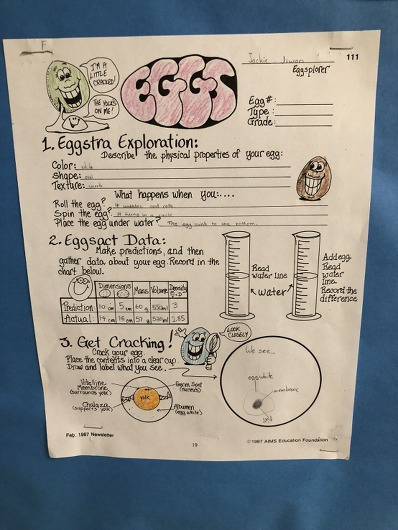 F
Jackie
111
Eggsplorer
I'M A LITTLE CRACKED!
THE YOLK'S ON ME!
EGGS
Egg#:
Type:
Grade:
1. Eggstra Exploration:
Describe the physical properties of your egg:
Color: white
Shape: oval
Texture: smooth
What happens when you....
Roll the egg? It wobbles and rolls
Spin the egg?
Place the egg under water? The egg sunk to the bottom.
2. Eggsact Data:
Make predictions, and then
gather data about your egg. Record in the
chart below.
Dimensions Mass Volume Density
Prediction: 10 cm 5 cm 60 g 3
Actual: 14 cm 16 cm 57 g 2.85
Read water line
←water→
Add egg. Read water line. Record the difference
3. Get Cracking!
Crack your egg.
Place the contents into a clear cup.
Draw and label what you see.
LOOK CLOSELY
Vitelline Membrane (surrounds yolk)
Chalaza (supports yolk)
yolk
Germ Spot (nucleus)
Albumen (egg white)
We see...
egg white
membrane
yolk
Feb. 1987 Newsletter
19
©1987 AIMS Education Foundation